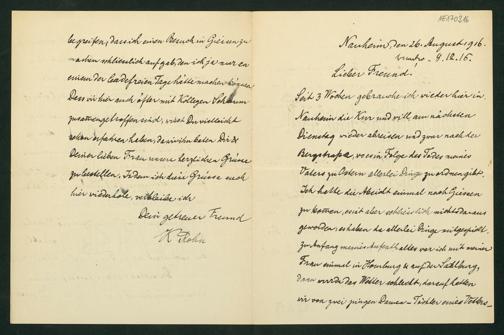 NE170316
Nauheim, den 26. August 1916.
9.12.16.
Lieber Freund!
Seit 3 Wochen gebrauche ich wieder hier in
Nauheim die Kur und will am nächsten
Dienstag wieder abreisen und zwar nach der
Bergstraße, wo es in Folge des Todes meines
Vaters zu Ostern allerlei Dinge zu ordnen gibt.
Ich hatte die Absicht einmal nach Giessen
zu kommen, es ist aber schliesslich nichts daraus
geworden; es haben da allerlei Dinge mitgespielt.
Zu Anfang meines Aufenthaltes war ich mit meiner
Frau einmal in Homburg u. auf der Saalburg,
dann wurde das Wetter schlecht, darauf hatten
wir von zwei jungen Damen - Töchter eines Vetters -
begreifen, dass ich einen Besuch in Giessen zu
machen schliesslich aufgab, den ich ja nur an
einem der badefreien Tage hätte machen können.
Dass wir hier auch öfter mit Kollegen
zusammengetroffen sind, wirst Du vielleicht
schon erfahren haben, da wir ihn baten Dir &
Deiner lieben Frau unsere herzlichen Grüsse
zu bestellen. Indem ich diese Grüsse auch
hier wiederhole, verbleibe ich
Dein getreuer Freund
K Rohn